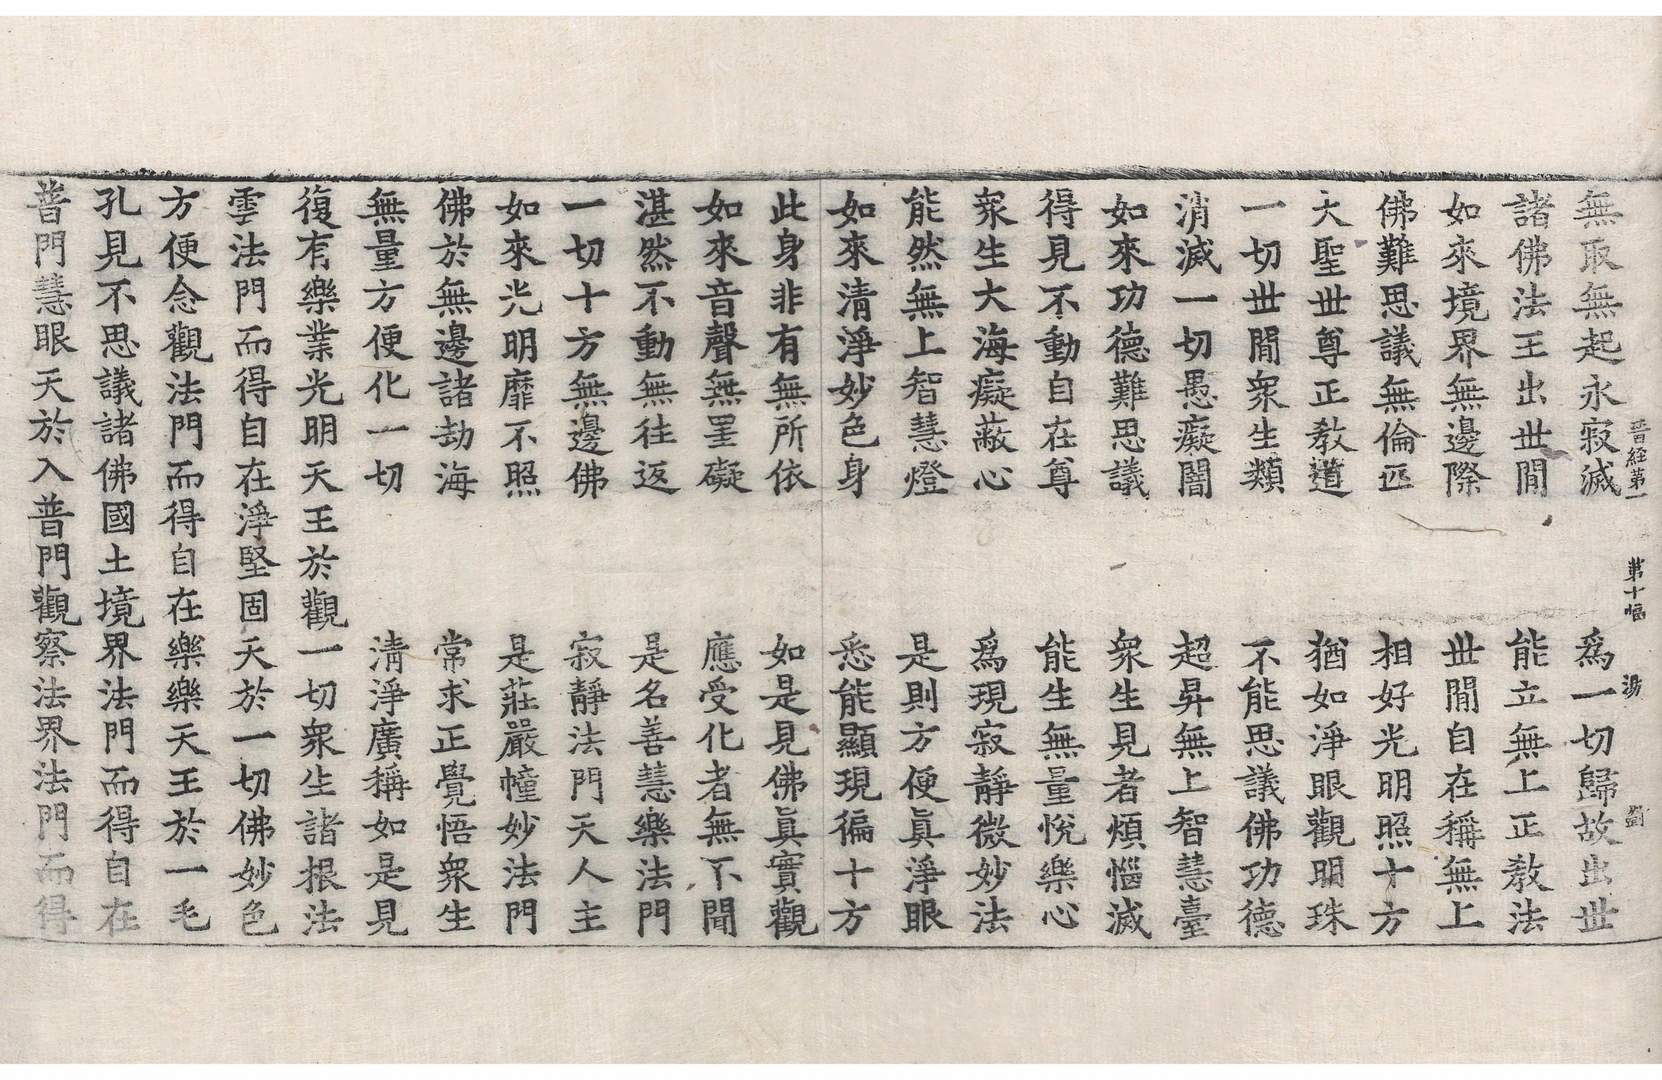 晋経第一 第十幅 湯 劉
無取無起永寂滅 爲一切歸故出世
諸佛法王出世間 能立無上正教法
如來境界無邊際 世間自在稱無上
佛難思議無倫匹 相好光明照十方
大聖世尊正教道 猶如淨眼觀明珠
一切世間衆生類 不能思議佛功德
消滅一切愚癡闇 超昇無上智慧臺
如來功德難思議 衆生見者煩惱滅
得見不動自在尊 能生無量悅樂心
衆生大海癡蔽心 爲現寂靜微妙法
能然無上智慧燈 是則方便眞淨眼
如來清淨妙色身 悉能顯現徧十方
此身非有無所依 如是見佛眞實觀
如來音聲無罣礙 應受化者無不聞
湛然不動無往返 是名善慧樂法門
一切十方無邊佛 寂靜法門天人主
如來光明靡不照 是莊嚴幢妙法門
佛於無邊諸劫海 常求正覺悟衆生
無量方便化一切 清淨廣稱如是見
復有樂業光明天王於觀一切衆生諸根法
雲法門而得自在淨堅固天於一切佛妙色
方便念觀法門而得自在樂樂天王於一毛
孔見不思議諸佛國土境界法門而得自在
普門慧眼天於入普門觀察法界法門而得